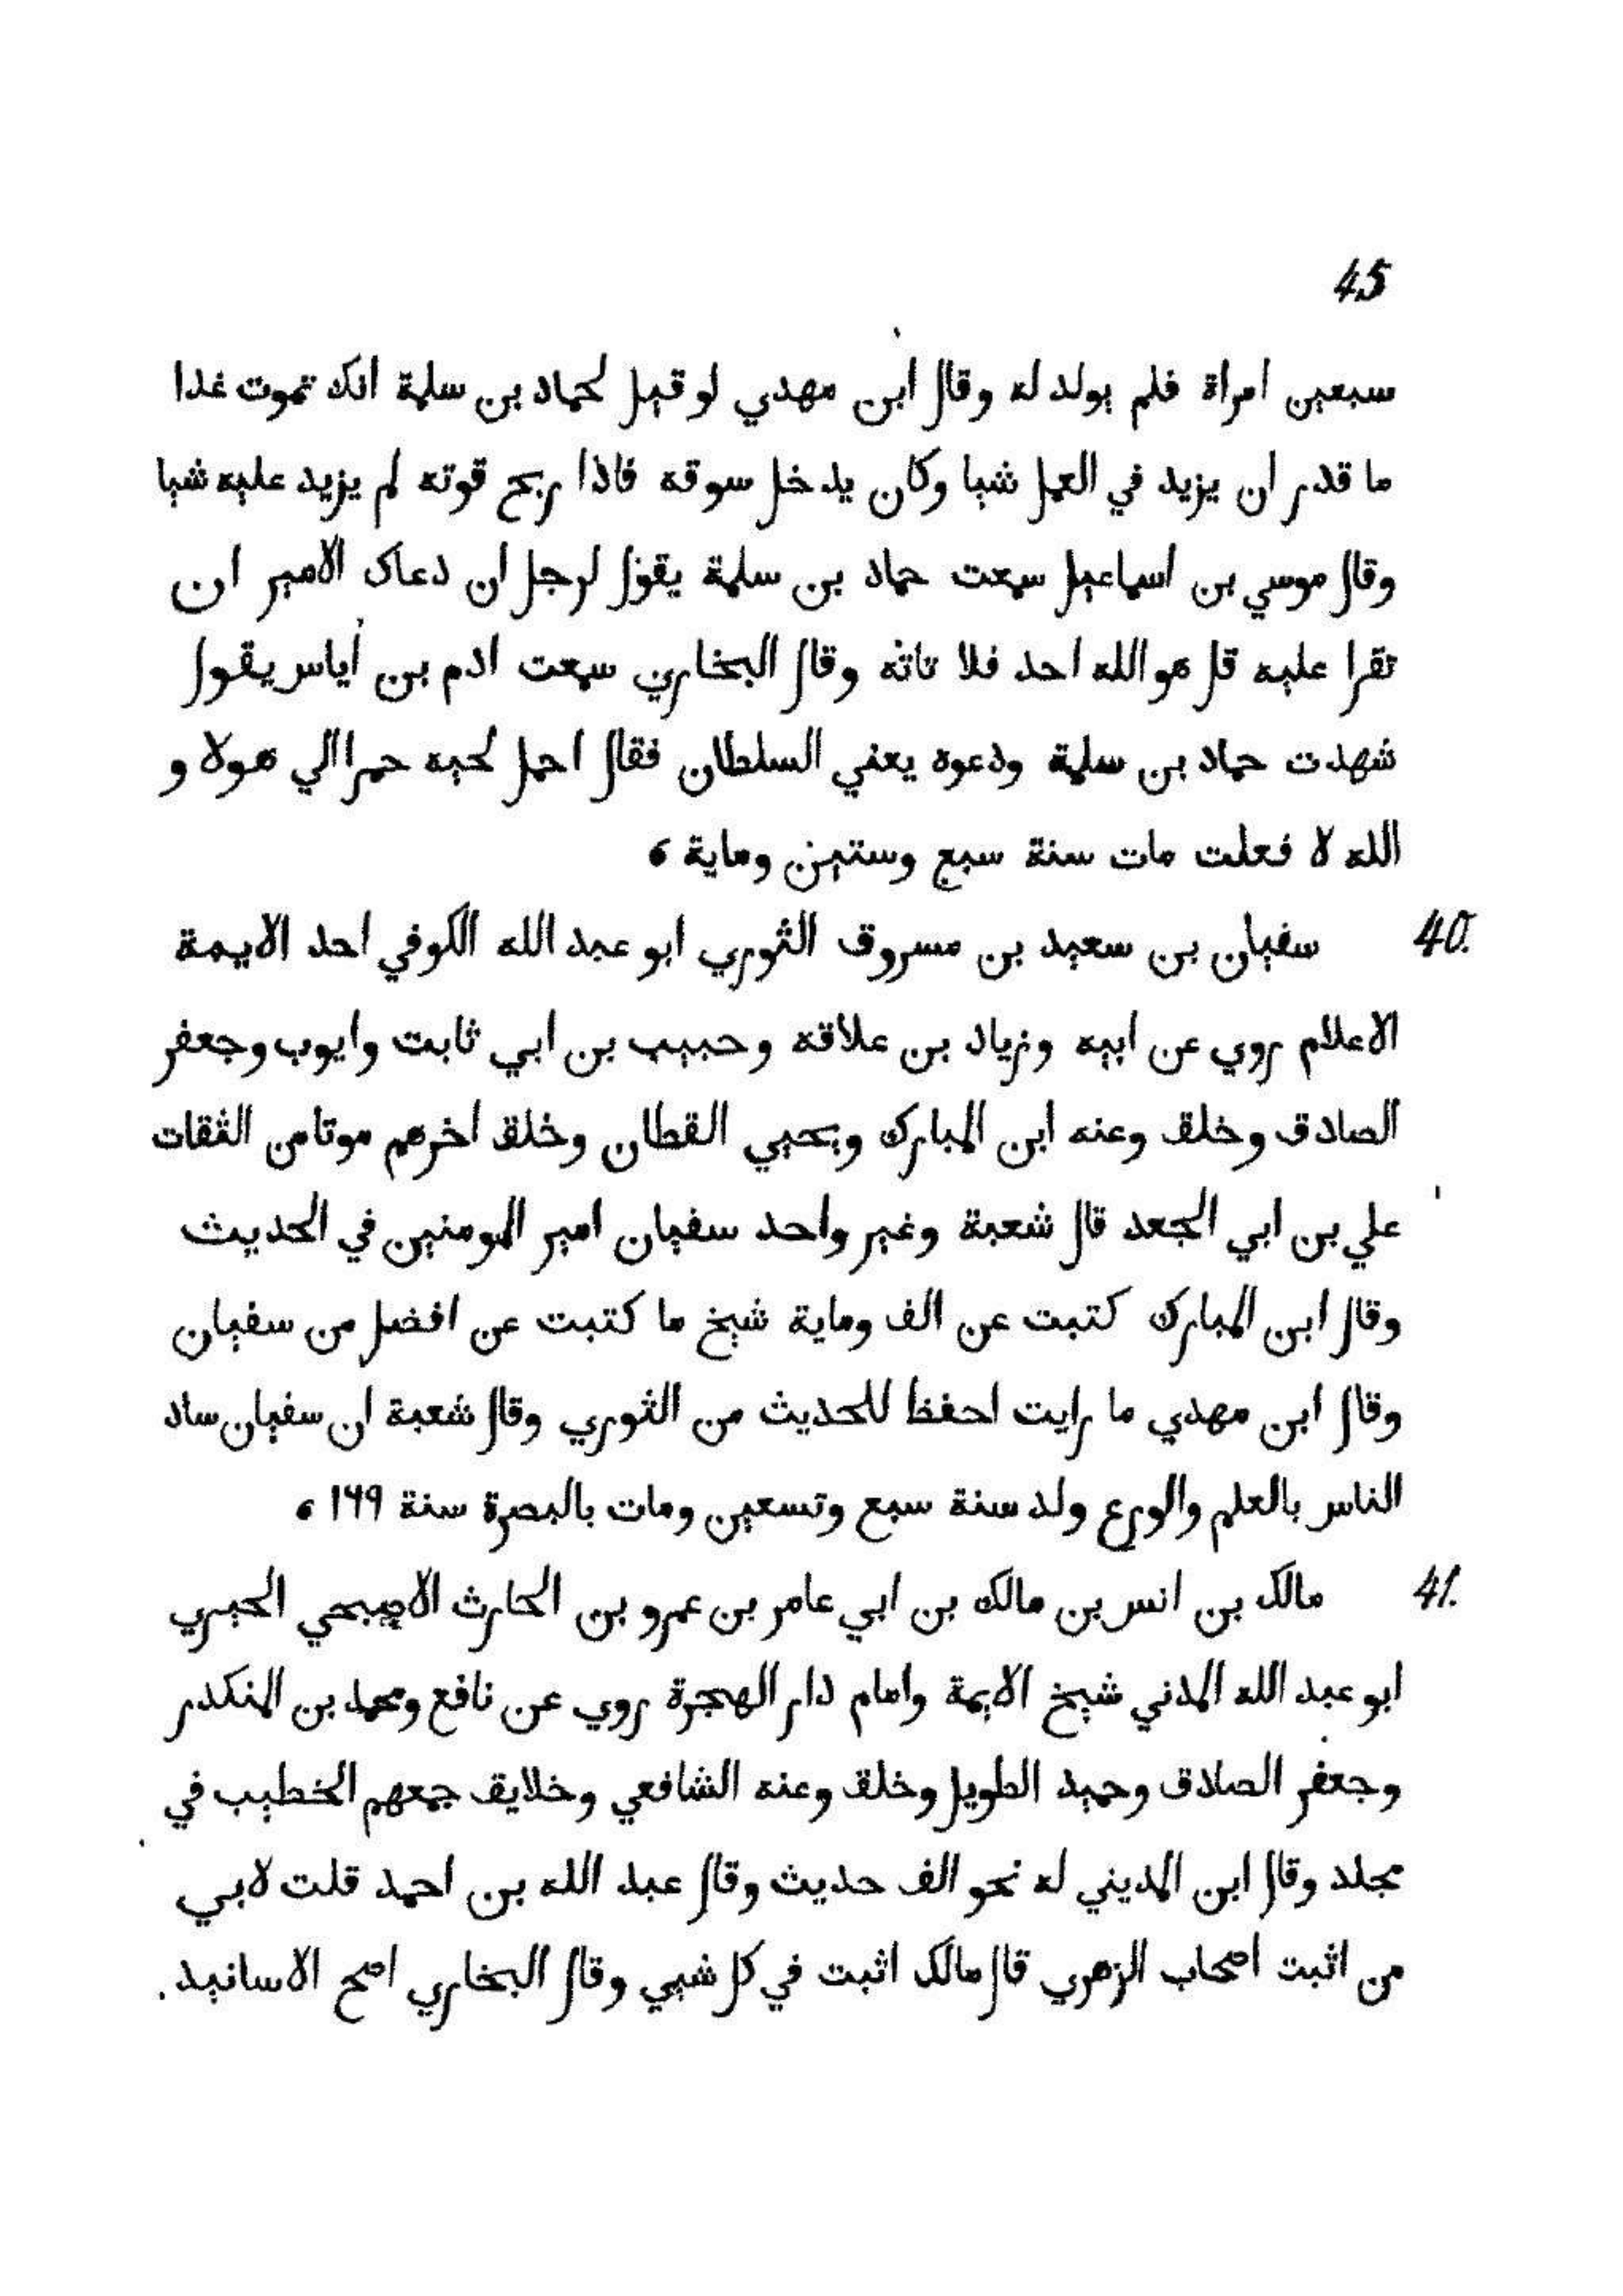 45
سبعين امراة فلم يولد له وقال ابن مهدي لو قيل لحماد بن سلمة انك تموت غدا
ما قدر ان يزيد في العمل شيا وكان يدخل سوقه فاذا ربح قوته لم يزيد عليه شيا
وقال موسي بن اسماعيل سمعت حماد بن سلمة يقول لرجل ان دعاك الامير ان
تقرا عليه قل هو الله احد فلا تاته وقال البخاري سمعت ادم بن أياس يقول
شهدت حماد بن سلمة ودعوه يعني السلطان فقال احمل لحيه حمرا الي هولا و
الله لا فعلت مات سنة سبع وستين وماية ٥
40. سفيان بن سعيد بن مسروق الثوري ابو عبد الله الكوفي احد الايمة
الاعلام روي عن ابيه وزياد بن علاقه وحبيب بن ابي ثابت وايوب وجعفر
الصادق وخلق وعنه ابن المبارك ويحيي القطان وخلق اخرهم موتا من الثقات
علي بن ابي الجعد قال شعبة وغير واحد سفيان امير المومنين في الحديث
وقال ابن المبارك كتبت عن الف وماية شيخ ما كتبت عن افضل من سفيان
وقال ابن مهدي ما رايت احفظ للحديث من الثوري وقال شعبة ان سفيان ساد
الناس بالعلم والورع ولد سنة سبع وتسعين ومات بالبصرة سنة ١٦٩ ٥
41. مالك بن انس بن مالك بن ابي عامر بن عمرو بن الحارث الاصبحي الحبري
ابو عبد الله المدني شيخ الايمة وامام دار الهجرة روي عن نافع ومحمد بن المنكدر
وجعفر الصادق وحميد الطويل وخلق وعنه الشافعي وخلايق جمعهم الخطيب في
مجلد وقال ابن المديني له نحو الف حديث وقال عبد الله بن احمد قلت لابي
من اثبت اصحاب الزهري قال مالك اثبت في كل شيي وقال البخاري اصح الاسانيد